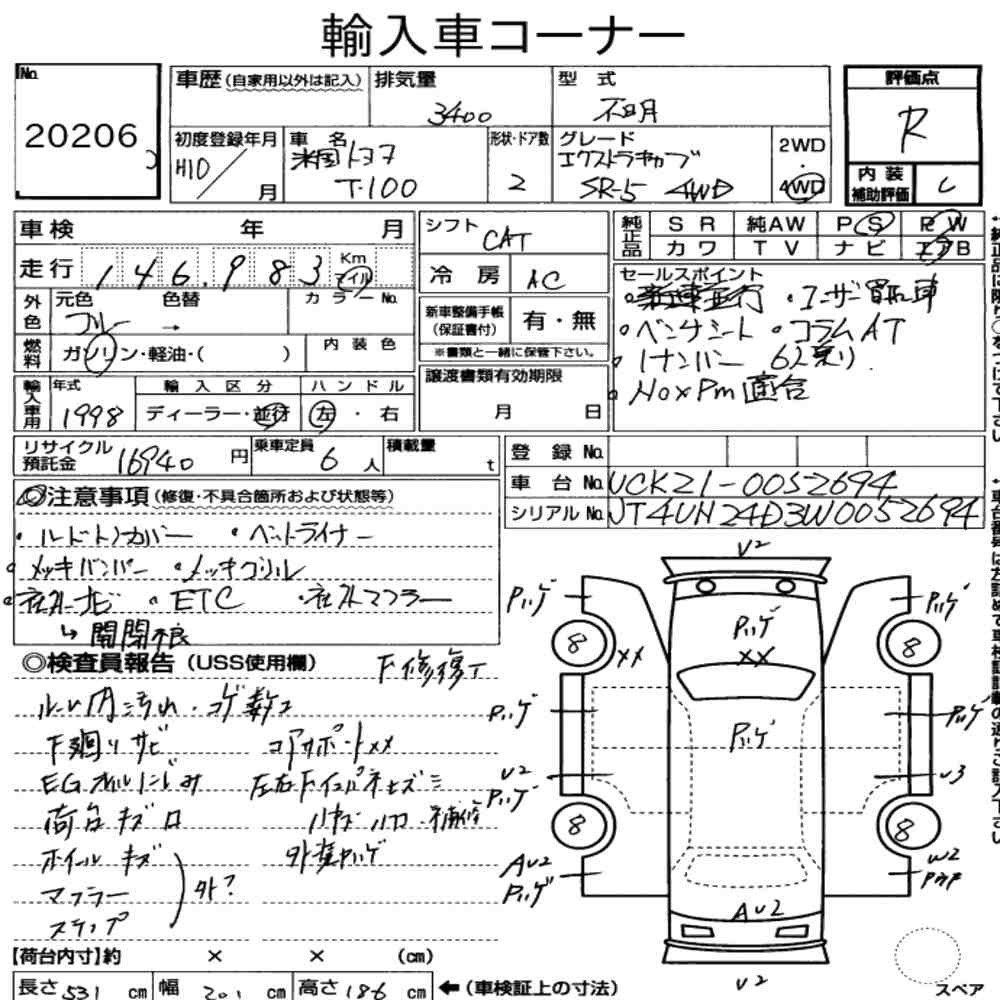 輸入車コーナー
No. 20206
車歴 (自家用以外は記入) 排気量 3400 型式 不明
評価点 R
初度登録年月 H10 / 月 車名 米国トヨタ T-100 形状・ドア数 2 グレード エクストラキャブ SR-5 4WD 2WD・4WD
内装補助評価 C
車検 年 月 シフト CAT 純正品 SR 純AW PS PW
カワ TV ナビ エアB
走行 146,983 Km マイル 冷房 AC
セールスポイント
新車並行 ・ユーザー買取車
・ベンチシート ・コラムAT
・1ナンバー 6人乗り
・NOxPm適合
外色 元色 ブルー → 色替 カラーNo.
新車整備手帳 (保証書付) 有・無
※書類と一緒に保管下さい。
燃料 ガソリン・軽油・( ) 内装色
譲渡書類有効期限 月 日
輸入車用 年式 1998 輸入区分 ディーラー・並行 ハンドル 左・右
リサイクル預託金 16940円 乗車定員 6人 積載量 t
登録No.
車台No. UCK21-0052694
シリアルNo. JT4UN24D3W0052694
◎注意事項 (修復・不具合箇所および状態等)
・ハードトノカバー ・ベットライナー
・メッキバンパー ・メッキグリル
・社外ナビ ・ETC ・社外マフラー
↳開閉不良
◎検査員報告 (USS使用欄) F修復了
ルーム内汚れ・コゲ数コ
下廻りサビ コアサポートXX
EGオイルにじみ 左右Fインパネキズミ
荷台キズ凹 ハガレ 補修
ホイールキズ 外装ヤケ
マフラー
ステップ 外?
【荷台内寸】約 × × (cm)
長さ 531 cm 幅 201 cm 高さ 186 cm ←(車検証上の寸法)
V2
8
XX
8
U2
U3
8
8
AU2
W2
AU2
U2
スペア